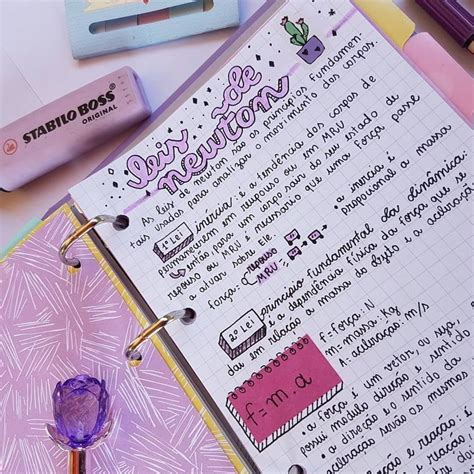 STABILO BOSS
ORIGINAL
leis de
newton
As leis de newton são os princípios fundamen-
tais usados para analizar o movimento dos corpos.
1ª Lei
inércia: é a tendência dos corpos de
permanecerem em repouso ou em MRU
então para um corpo sair do seu estado de
repouso ou MRU é necessário que uma força passe
a atuar sobre Ele
força: repouso
MRU
a inércia é
proporcional a massa
2ª Lei
princípio fundamental da dinâmica
é a dependência física da força que se
em relação a massa do objeto e a aceleração
f=m.a
f=força: N
m=massa: Kg
A=aceleração: m/s
a força é um vetor, ou seja,
possui direção e sentido
a direção e o sentido da
aceleração serão os mesmos